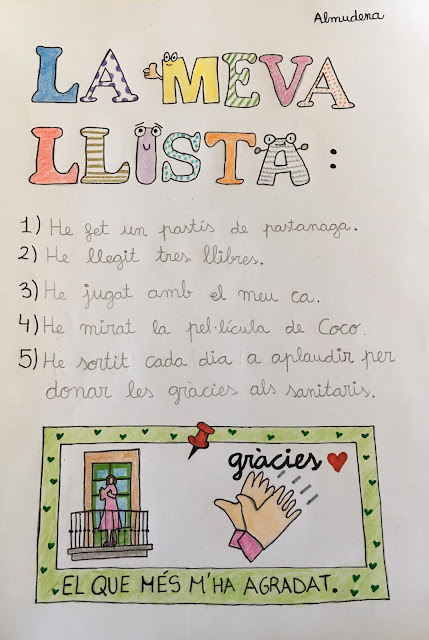 Almudena
LA MEVA
LLISTA :
1) He fet un pastís de pastanaga.
2) He llegit tres llibres.
3) He jugat amb el meu ca.
4) He mirat la pel·lícula de Coco.
5) He sortit cada dia a aplaudir per
donar les gràcies als sanitaris.
gràcies
EL QUE MÉS M'HA AGRADAT.